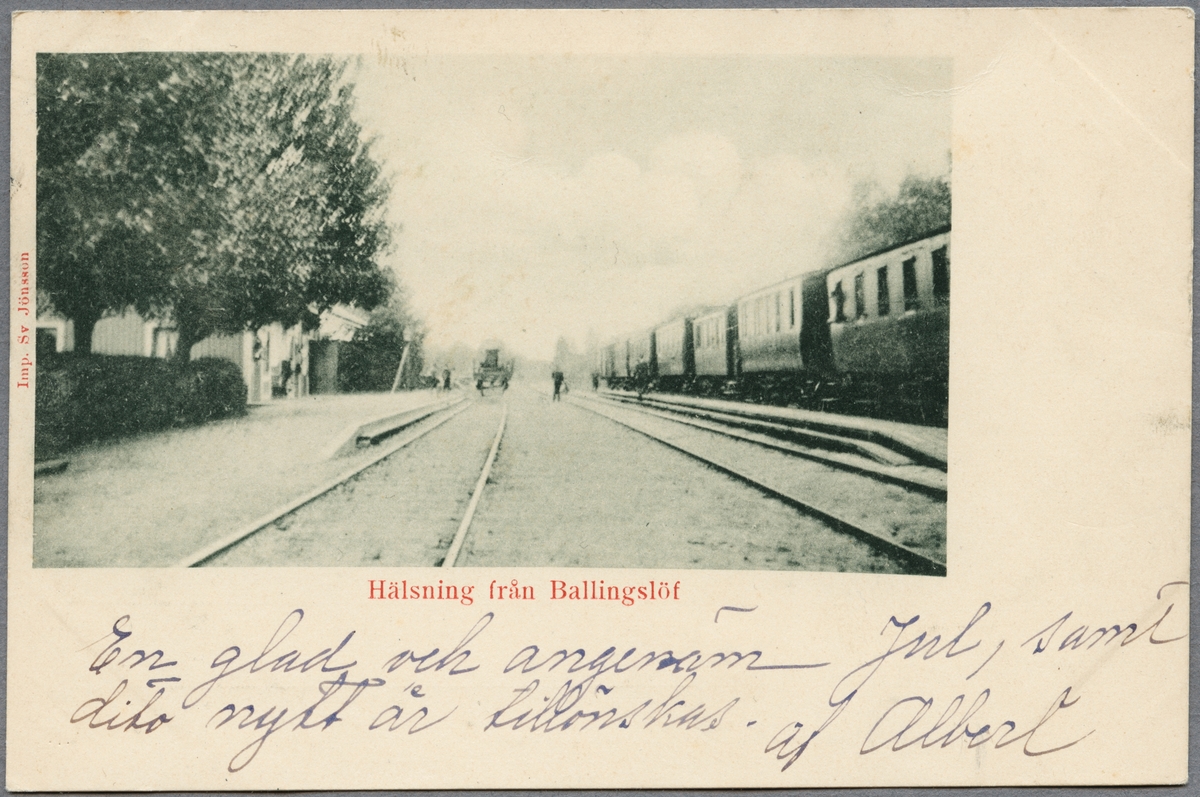 Imp. Sv Jönsson
Hälsning från Ballingslöf
En glad och angenäm Jul, samt
dito nytt år tillönskas.
af Albert